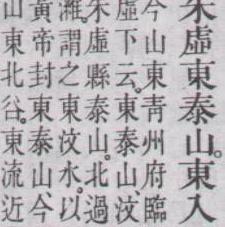 朱虛東泰山。東入
今山東青州府臨
虛下云。東泰山、汶
朱虛縣泰山。北過
濰。謂之東汶水。以
黃帝封東泰山、今
山東北谷。東流近